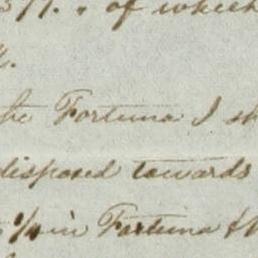 of which
the Fortuna I sh
disposed towards
1/4 in Fortuna & th